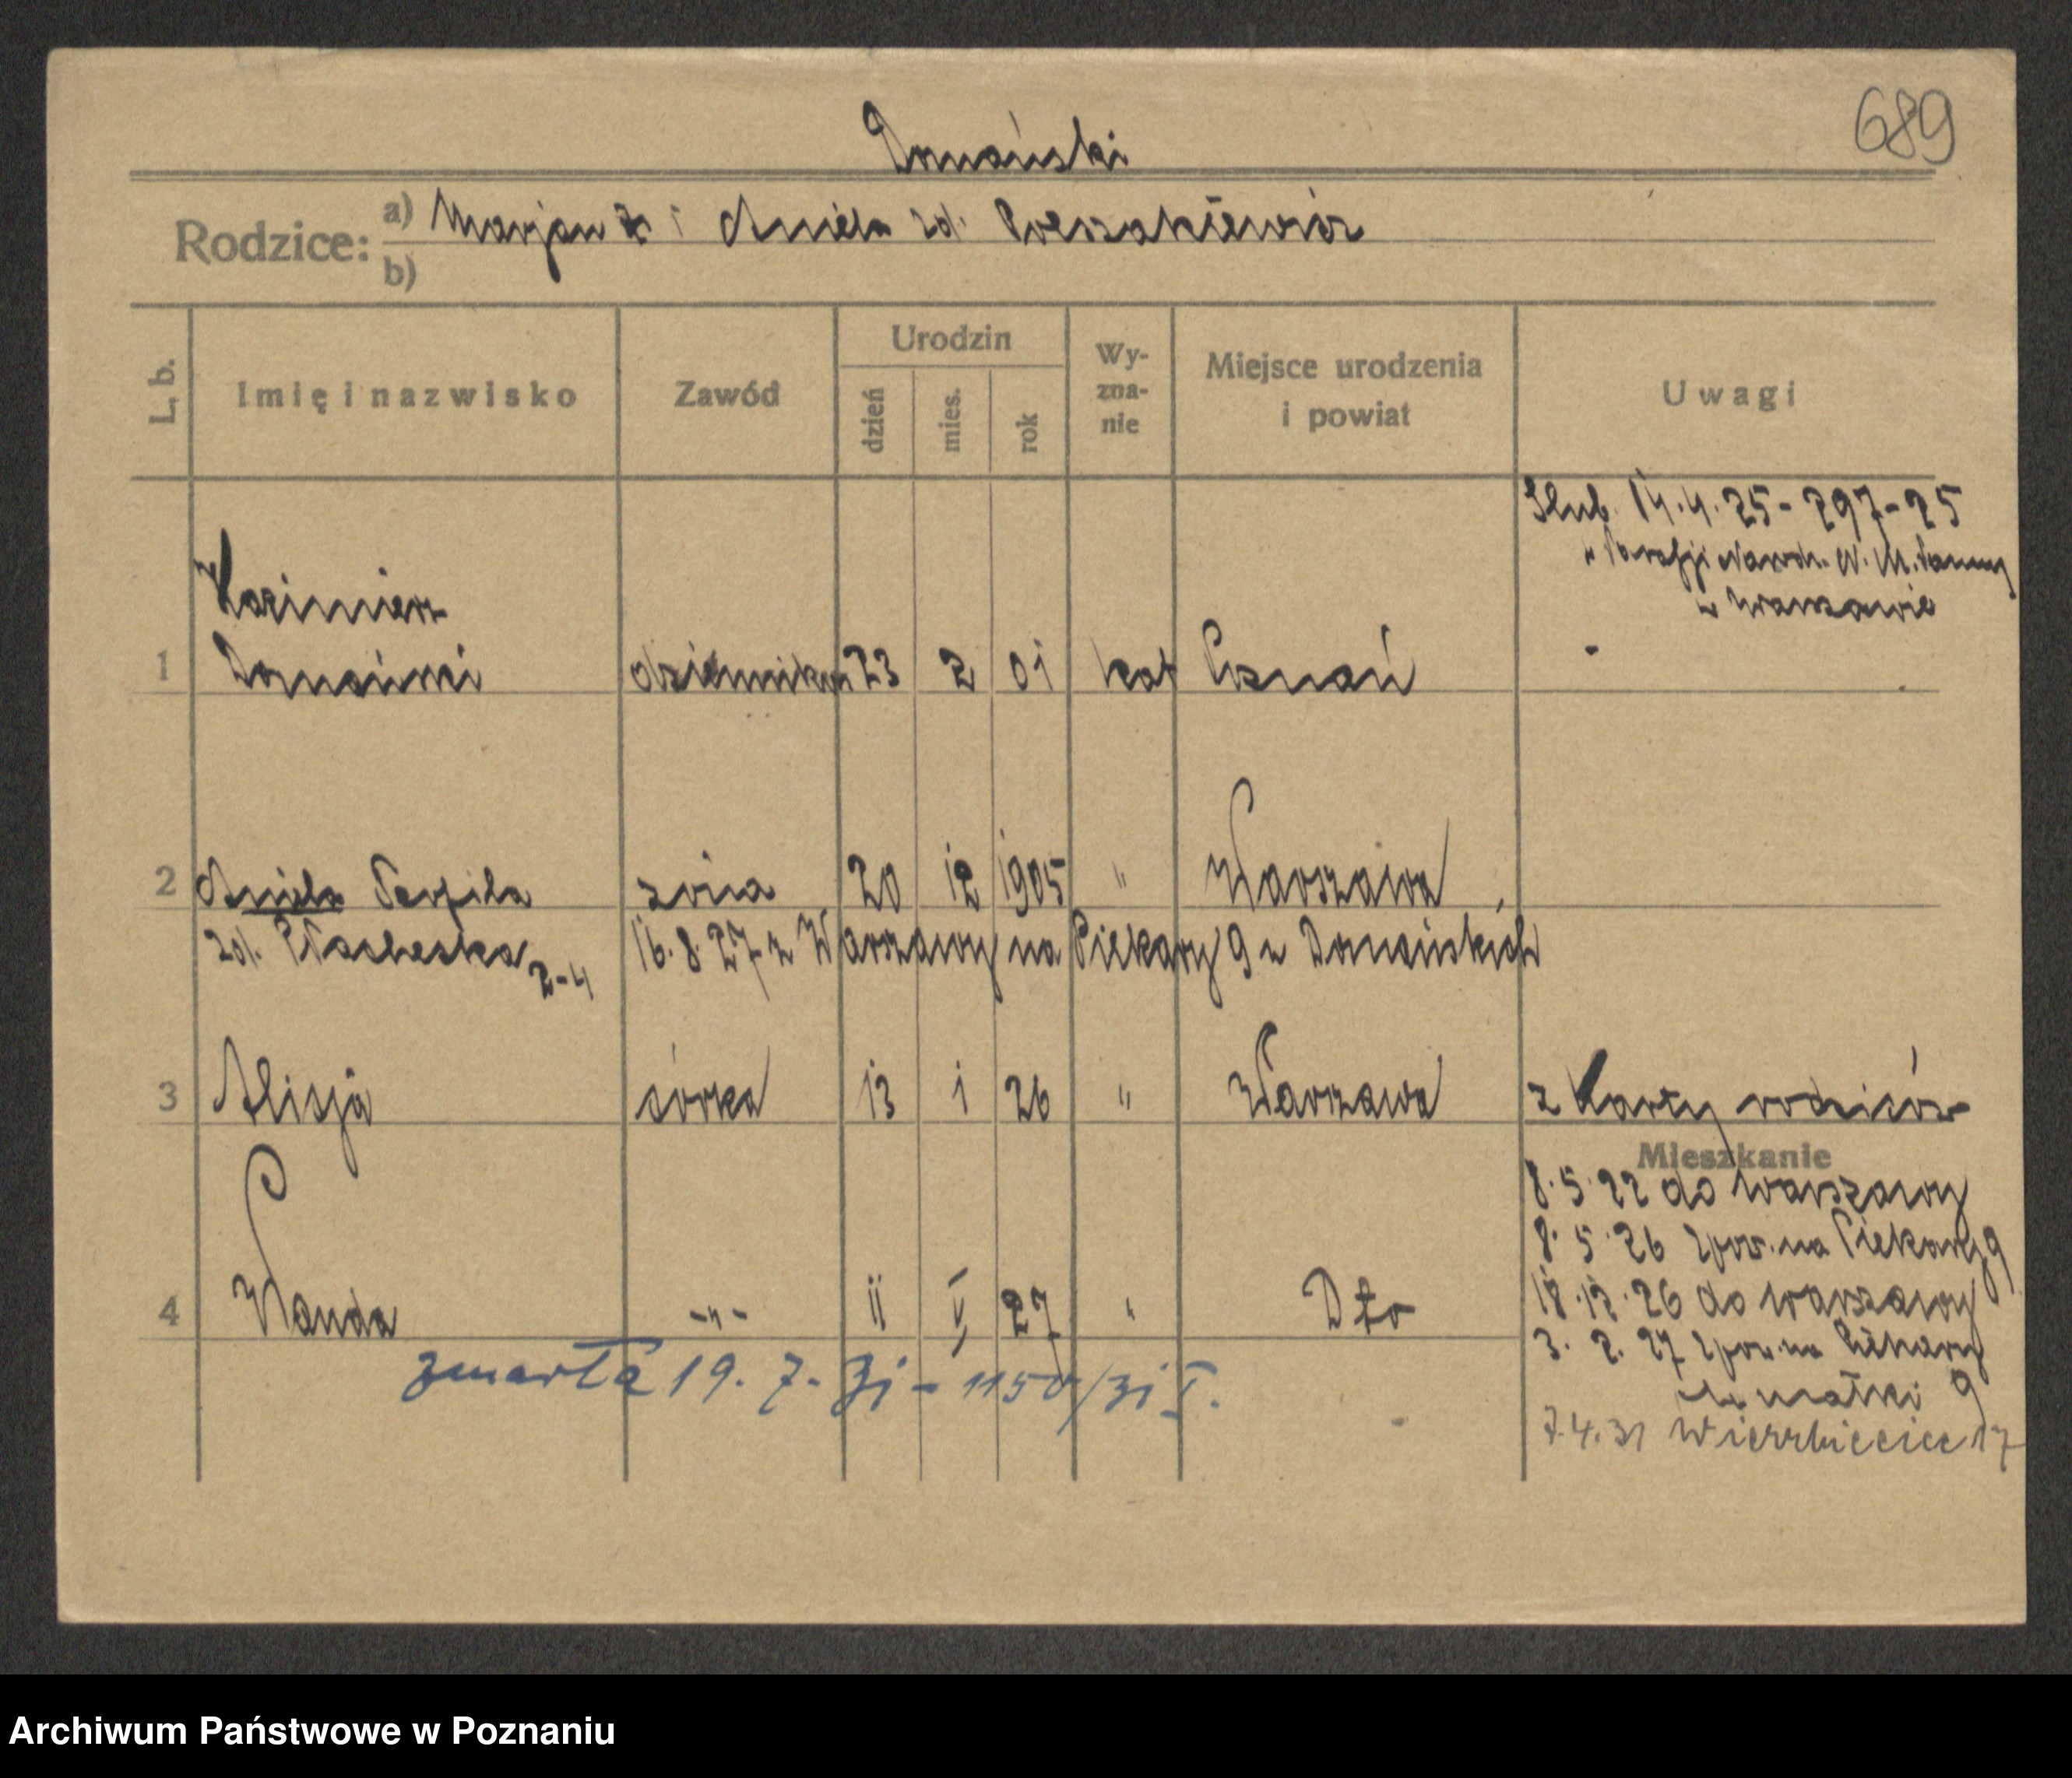 689
Domański
Rodzice: a) Marjan i Aniela zd.
b)
L, b. Imię i nazwisko Zawód Urodzin dzień mies. rok Wy-zna-nie Miejsce urodzenia i powiat Uwagi
Ślub 14.4.25 - 297-25
w Parafji Narodz. N. M. Panny
w Warszawie
Kazimierz
1 Domański 23 2 01 kat Poznań
2 Aniela żona 20 12 1905 " Warszawa
zd. 2-4 16.8.27 z Warszawy na Piekary 9 u Domańskich
3 Alicja córka 13 1 26 " Warszawa z Karty rodziców
Mieszkanie
8.5.22 do Warszawy
8.5.26 zpow. na Piekary 9
4 Wanda -"- 11 V 27 " Dto 18.12.26 do Warszawy
3. 2. 27 zpow. na Piekary 9
matki
zmarła 19. 7. 31 - 1150/31 I.
7.4.31 Wierzbięcice 17
Archiwum Państwowe w Poznaniu